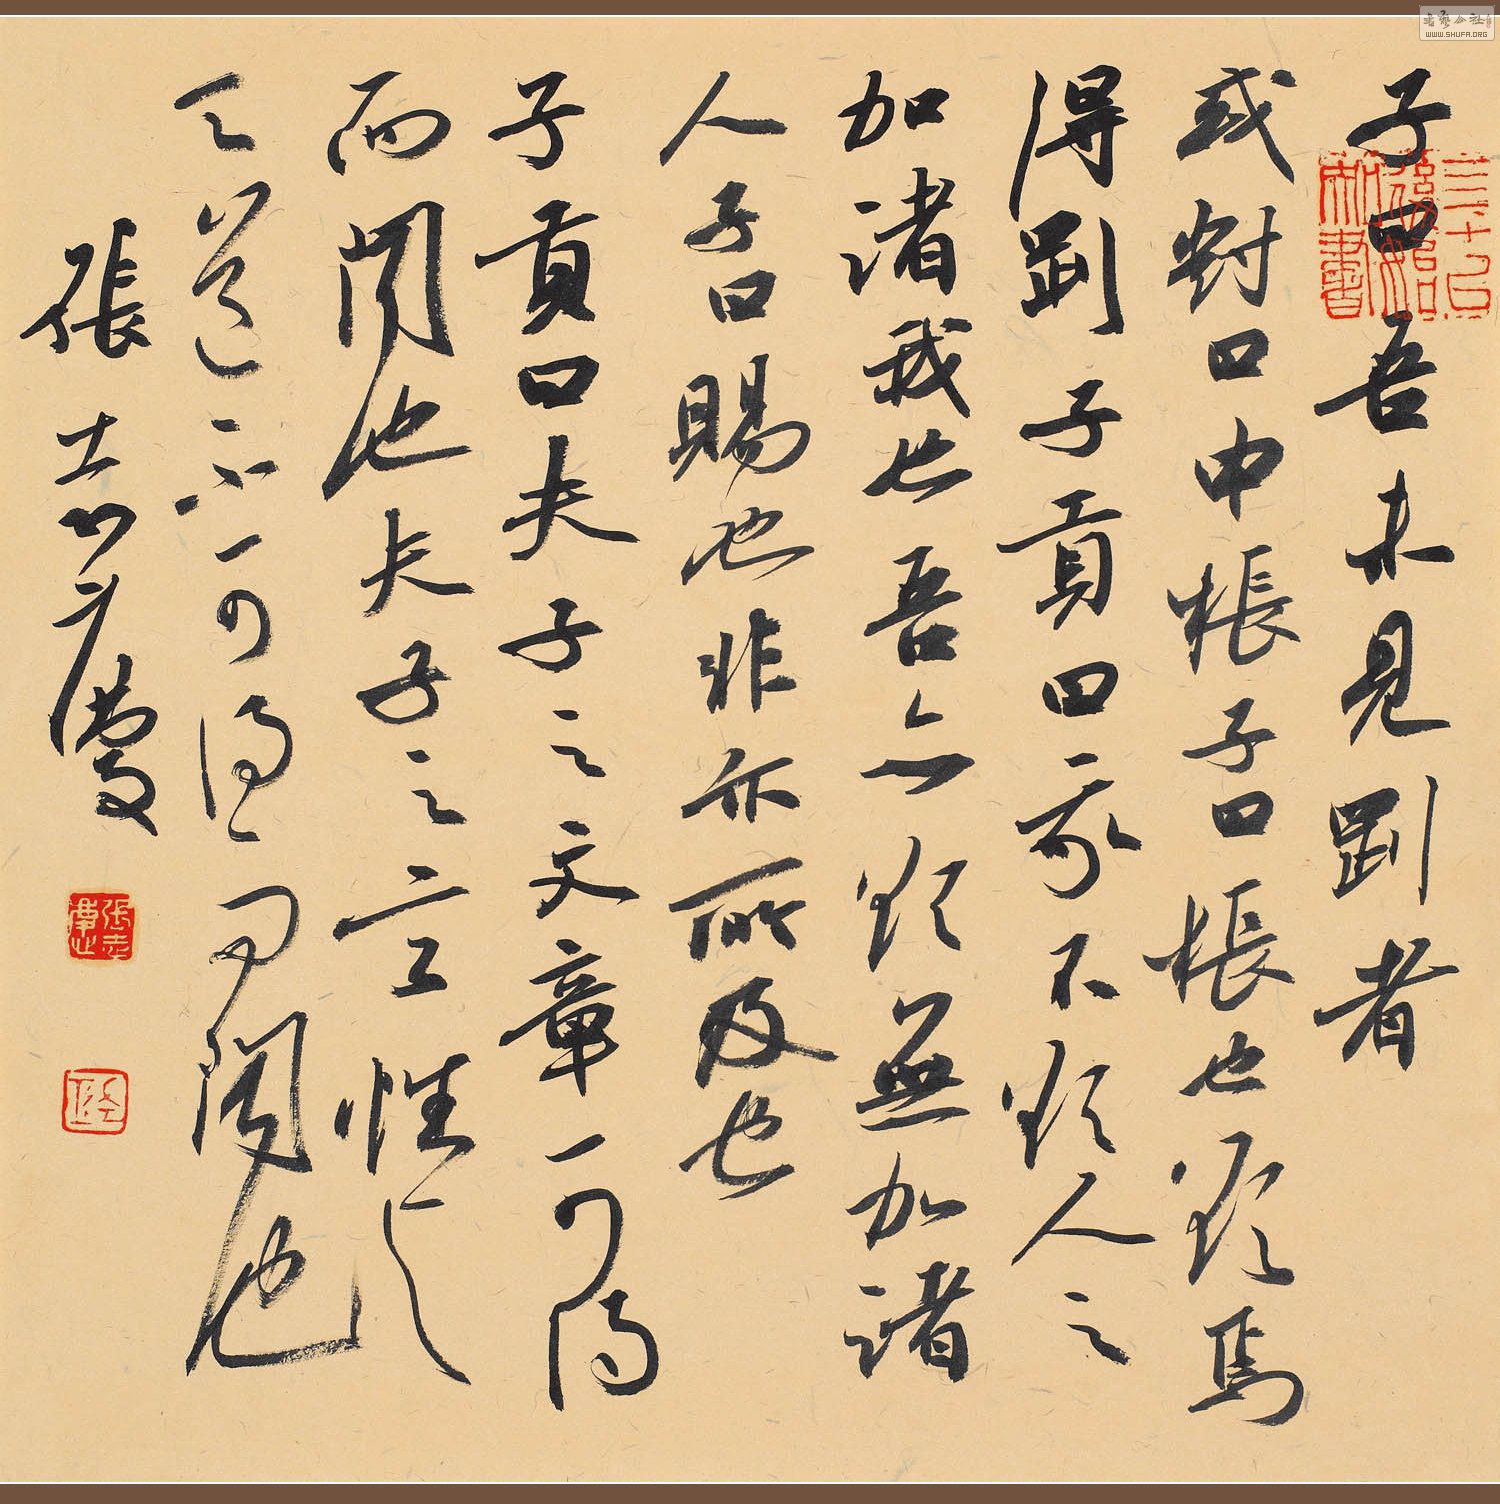 子曰吾未見剛者
或對曰申棖子曰棖也欲焉
得剛子貢曰我不欲人之
加諸我也吾亦欲無加諸
人子曰賜也非尔所及也
子貢曰夫子之文章可得
而聞也夫子之言性與
天道不可得而聞也
張志慶
書藝公社
WWW.SHUFA.ORG